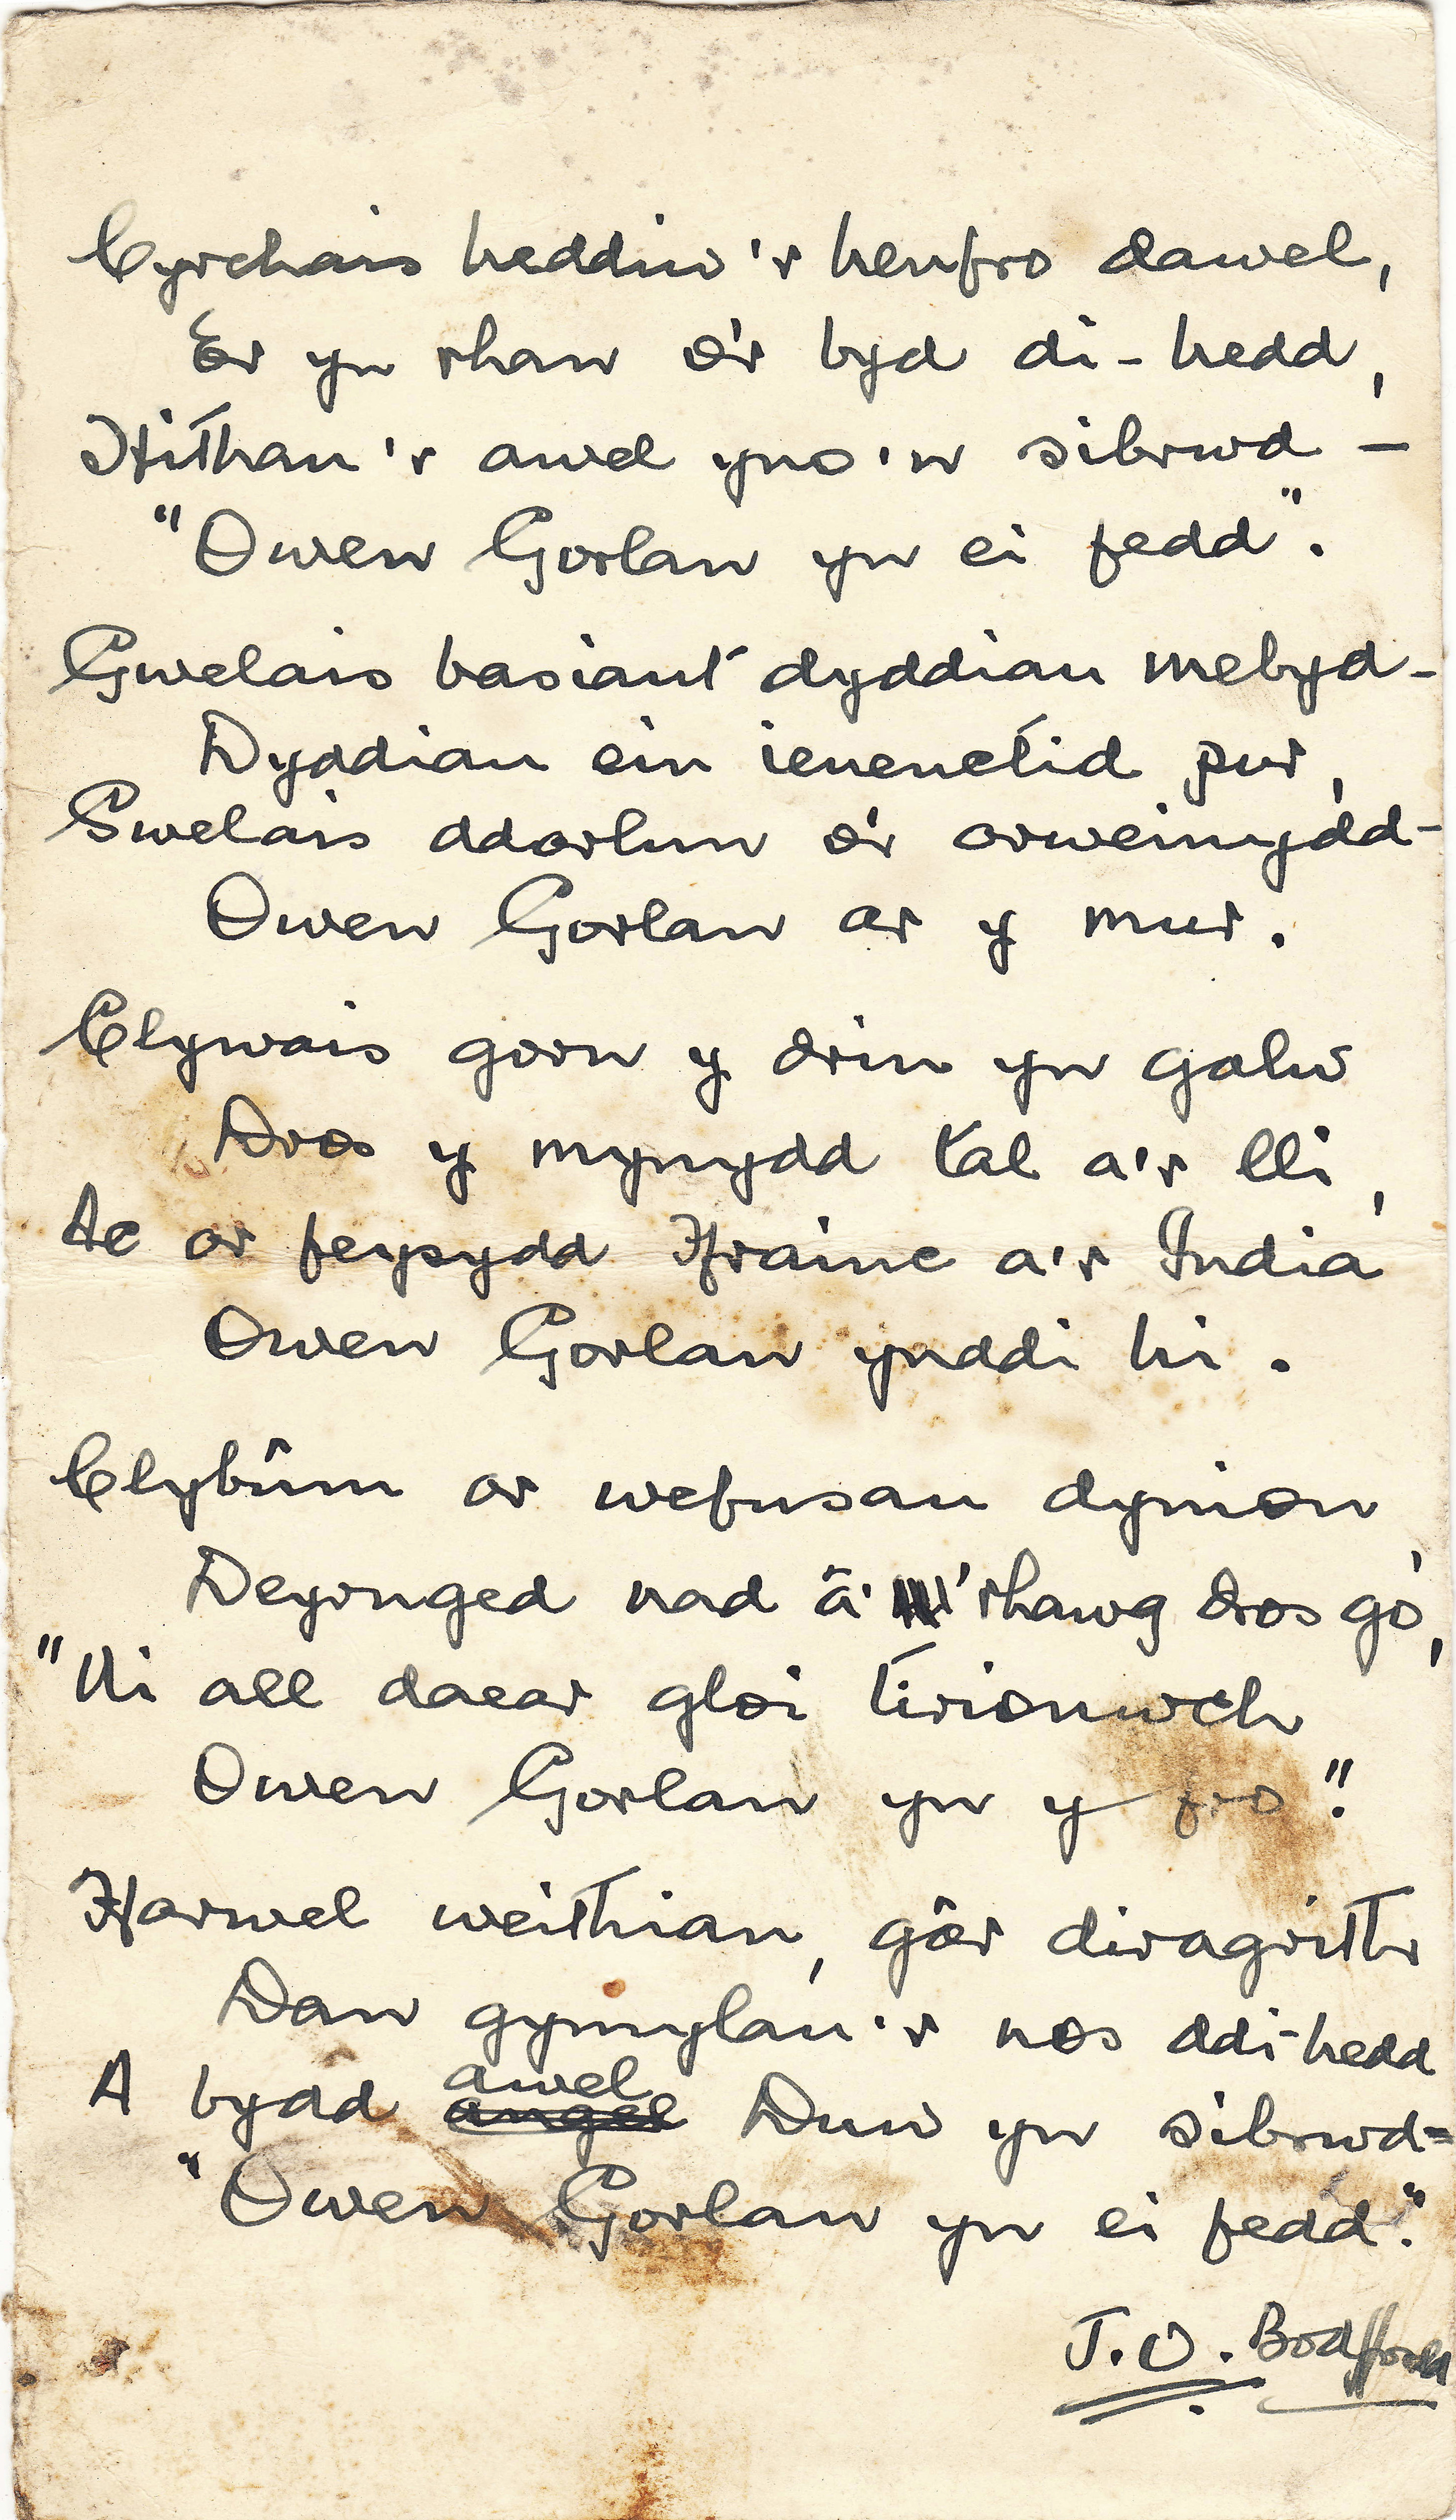 Cyrchais heddiw'r henfro dawel,
Er yn rhan o'r byd di-hedd,
Hithau'r awel yno'n sibrwd –
"Owen Gorlan yn ei fedd".
Gwelais basiant dyddiau mebyd –
Dyddiau ein ieuenctid pur,
Gwelais ddarlun o'r arweinydd –
Owen Gorlan ar y mur.
Clywais gorn y drin yn galw
Dros y mynydd tal a'r lli,
Ac ar feysydd Ffrainc a'r India
Owen Gorlan ynddi hi.
Clybûm ar wefusau dynion
Deyrnged nad â 'rhawg dros go',
"Ni all daear gloi tirionwch
Owen Gorlan yn y fro".
Ffarwel weithian, gâr diragrith
Dan gymylau'r nos ddi-hedd
A bydd awel Duw yn sibrwd =
"Owen Gorlan yn ei fedd".
J.O.